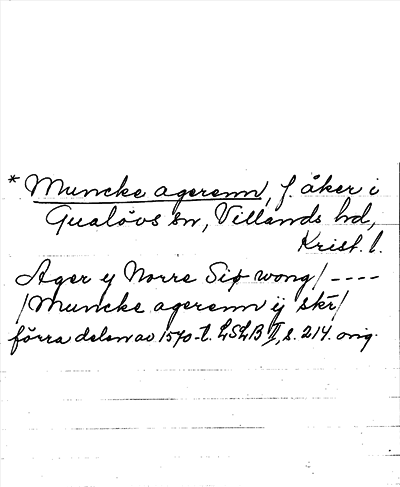 * Muncke agerenn, f. åker i
Gualövs sn, Villands hd,
Krist. l.
Ager y Norre Siø wong/ ----
/Muncke agerenn ij skr/
förra delen av 1570-t. LSLB II, s. 214. orig.